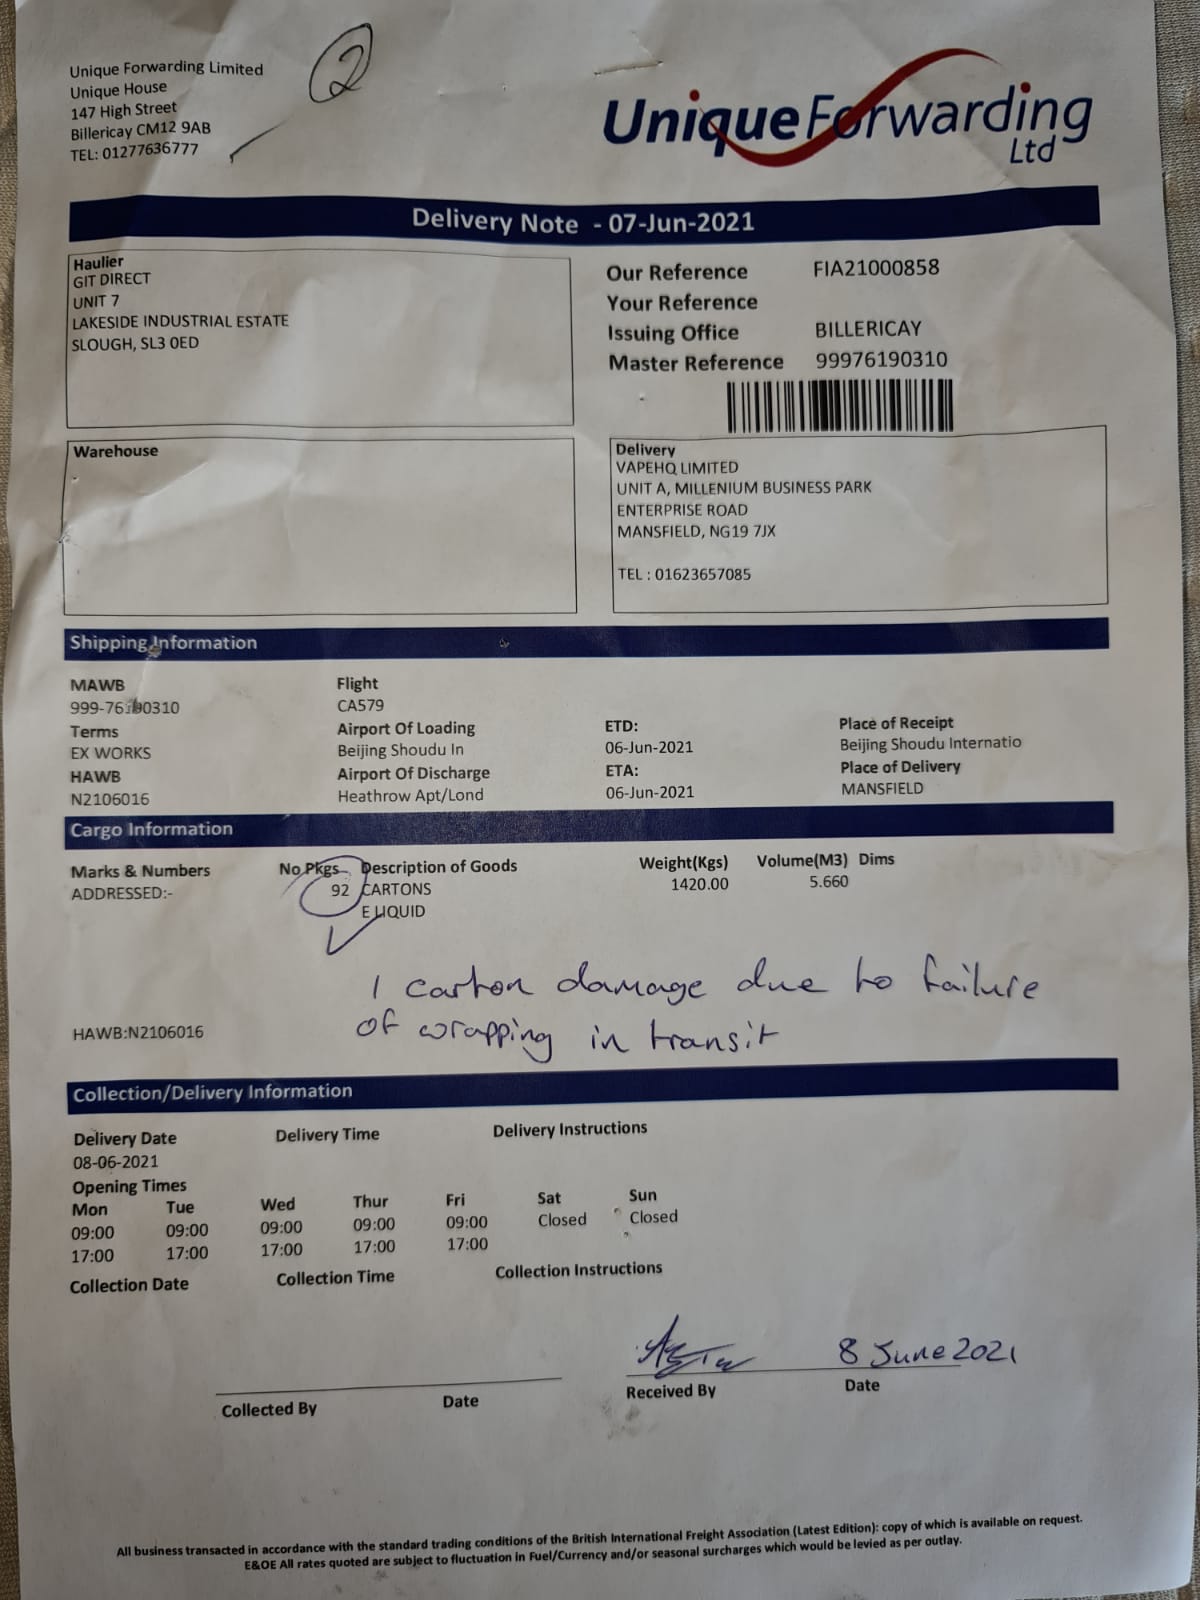 Unique Forwarding Limited
Unique House
147 High Street
Billericay CM12 9AB
TEL: 01277636777
2
UniqueForwarding
Ltd
Delivery Note - 07-Jun-2021
Haulier
GIT DIRECT
UNIT 7
LAKESIDE INDUSTRIAL ESTATE
SLOUGH, SL3 0ED
Our Reference FIA21000858
Your Reference
Issuing Office BILLERICAY
Master Reference 99976190310
Warehouse
Delivery
VAPEHQ LIMITED
UNIT A, MILLENIUM BUSINESS PARK
ENTERPRISE ROAD
MANSFIELD, NG19 7JX
TEL : 01623657085
Shipping Information
MAWB Flight
999-76190310 CA579
Terms Airport Of Loading ETD: Place of Receipt
EX WORKS Beijing Shoudu In 06-Jun-2021 Beijing Shoudu Internatio
HAWB Airport Of Discharge ETA: Place of Delivery
N2106016 Heathrow Apt/Lond 06-Jun-2021 MANSFIELD
Cargo Information
Marks & Numbers No Pkgs Description of Goods Weight(Kgs) Volume(M3) Dims
ADDRESSED:- 92 CARTONS 1420.00 5.660
E LIQUID
1 carton damage due to failure
of wrapping in transit
HAWB:N2106016
Collection/Delivery Information
Delivery Date Delivery Time Delivery Instructions
08-06-2021
Opening Times
Mon Tue Wed Thur Fri Sat Sun
09:00 09:00 09:00 09:00 09:00 Closed Closed
17:00 17:00 17:00 17:00 17:00
Collection Date Collection Time Collection Instructions
8 June 2021
Collected By Date Received By Date
All business transacted in accordance with the standard trading conditions of the British International Freight Association (Latest Edition): copy of which is available on request.
E&OE All rates quoted are subject to fluctuation in Fuel/Currency and/or seasonal surcharges which would be levied as per outlay.